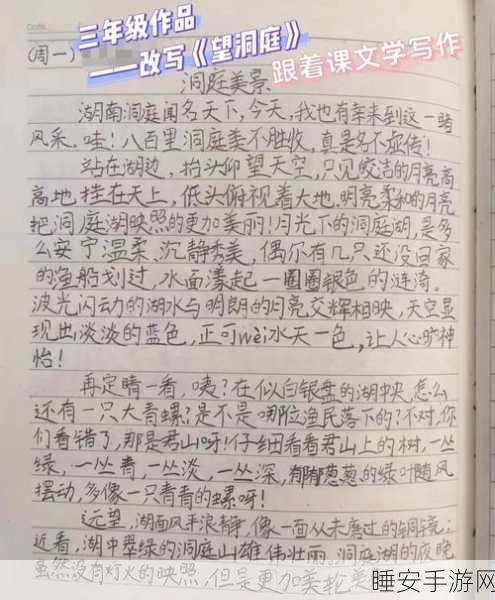 三年级作品
——改写《望洞庭》
跟着课文学写作
(周一)
洞庭美景
湖南洞庭闻名天下,今天,我也有幸来到这一睹
风采。哇!八百里洞庭美不胜收,真是名不虚传!
站在湖边,抬头仰望天空,只见皎洁的月亮高
高地挂在天上,低头俯视着大地,明亮柔和的月亮
把洞庭湖映照的更加美丽!月光下的洞庭湖,是多
么安宁温柔、沉静秀美,偶尔有几只还没回家
的渔船划过,水面漾起一圈圈银色的涟漪。
波光闪动的湖水与明朗的月亮交辉相映,天空显
现出淡淡的蓝色,正可wèi水天一色,让人心旷神
怡!
再定睛一看,咦?在似白银盘的湖中央,怎么
还有一只大青螺?是不是哪位渔民落下的?不对,你
们看错了,那是君山呀!仔细看看君山上的树,一丛
绿,一丛青,一丛淡,一丛深,郁郁葱葱的绿叶随风
摆动,多像一只青青的螺呀!
远望,湖面风平浪静,像一面从未磨过的铜镜;
近看,湖中翠绿的洞庭山雄伟壮丽。洞庭湖的夜晚
虽然没有灯火的映照,但是更加美轮美
睡安手游网